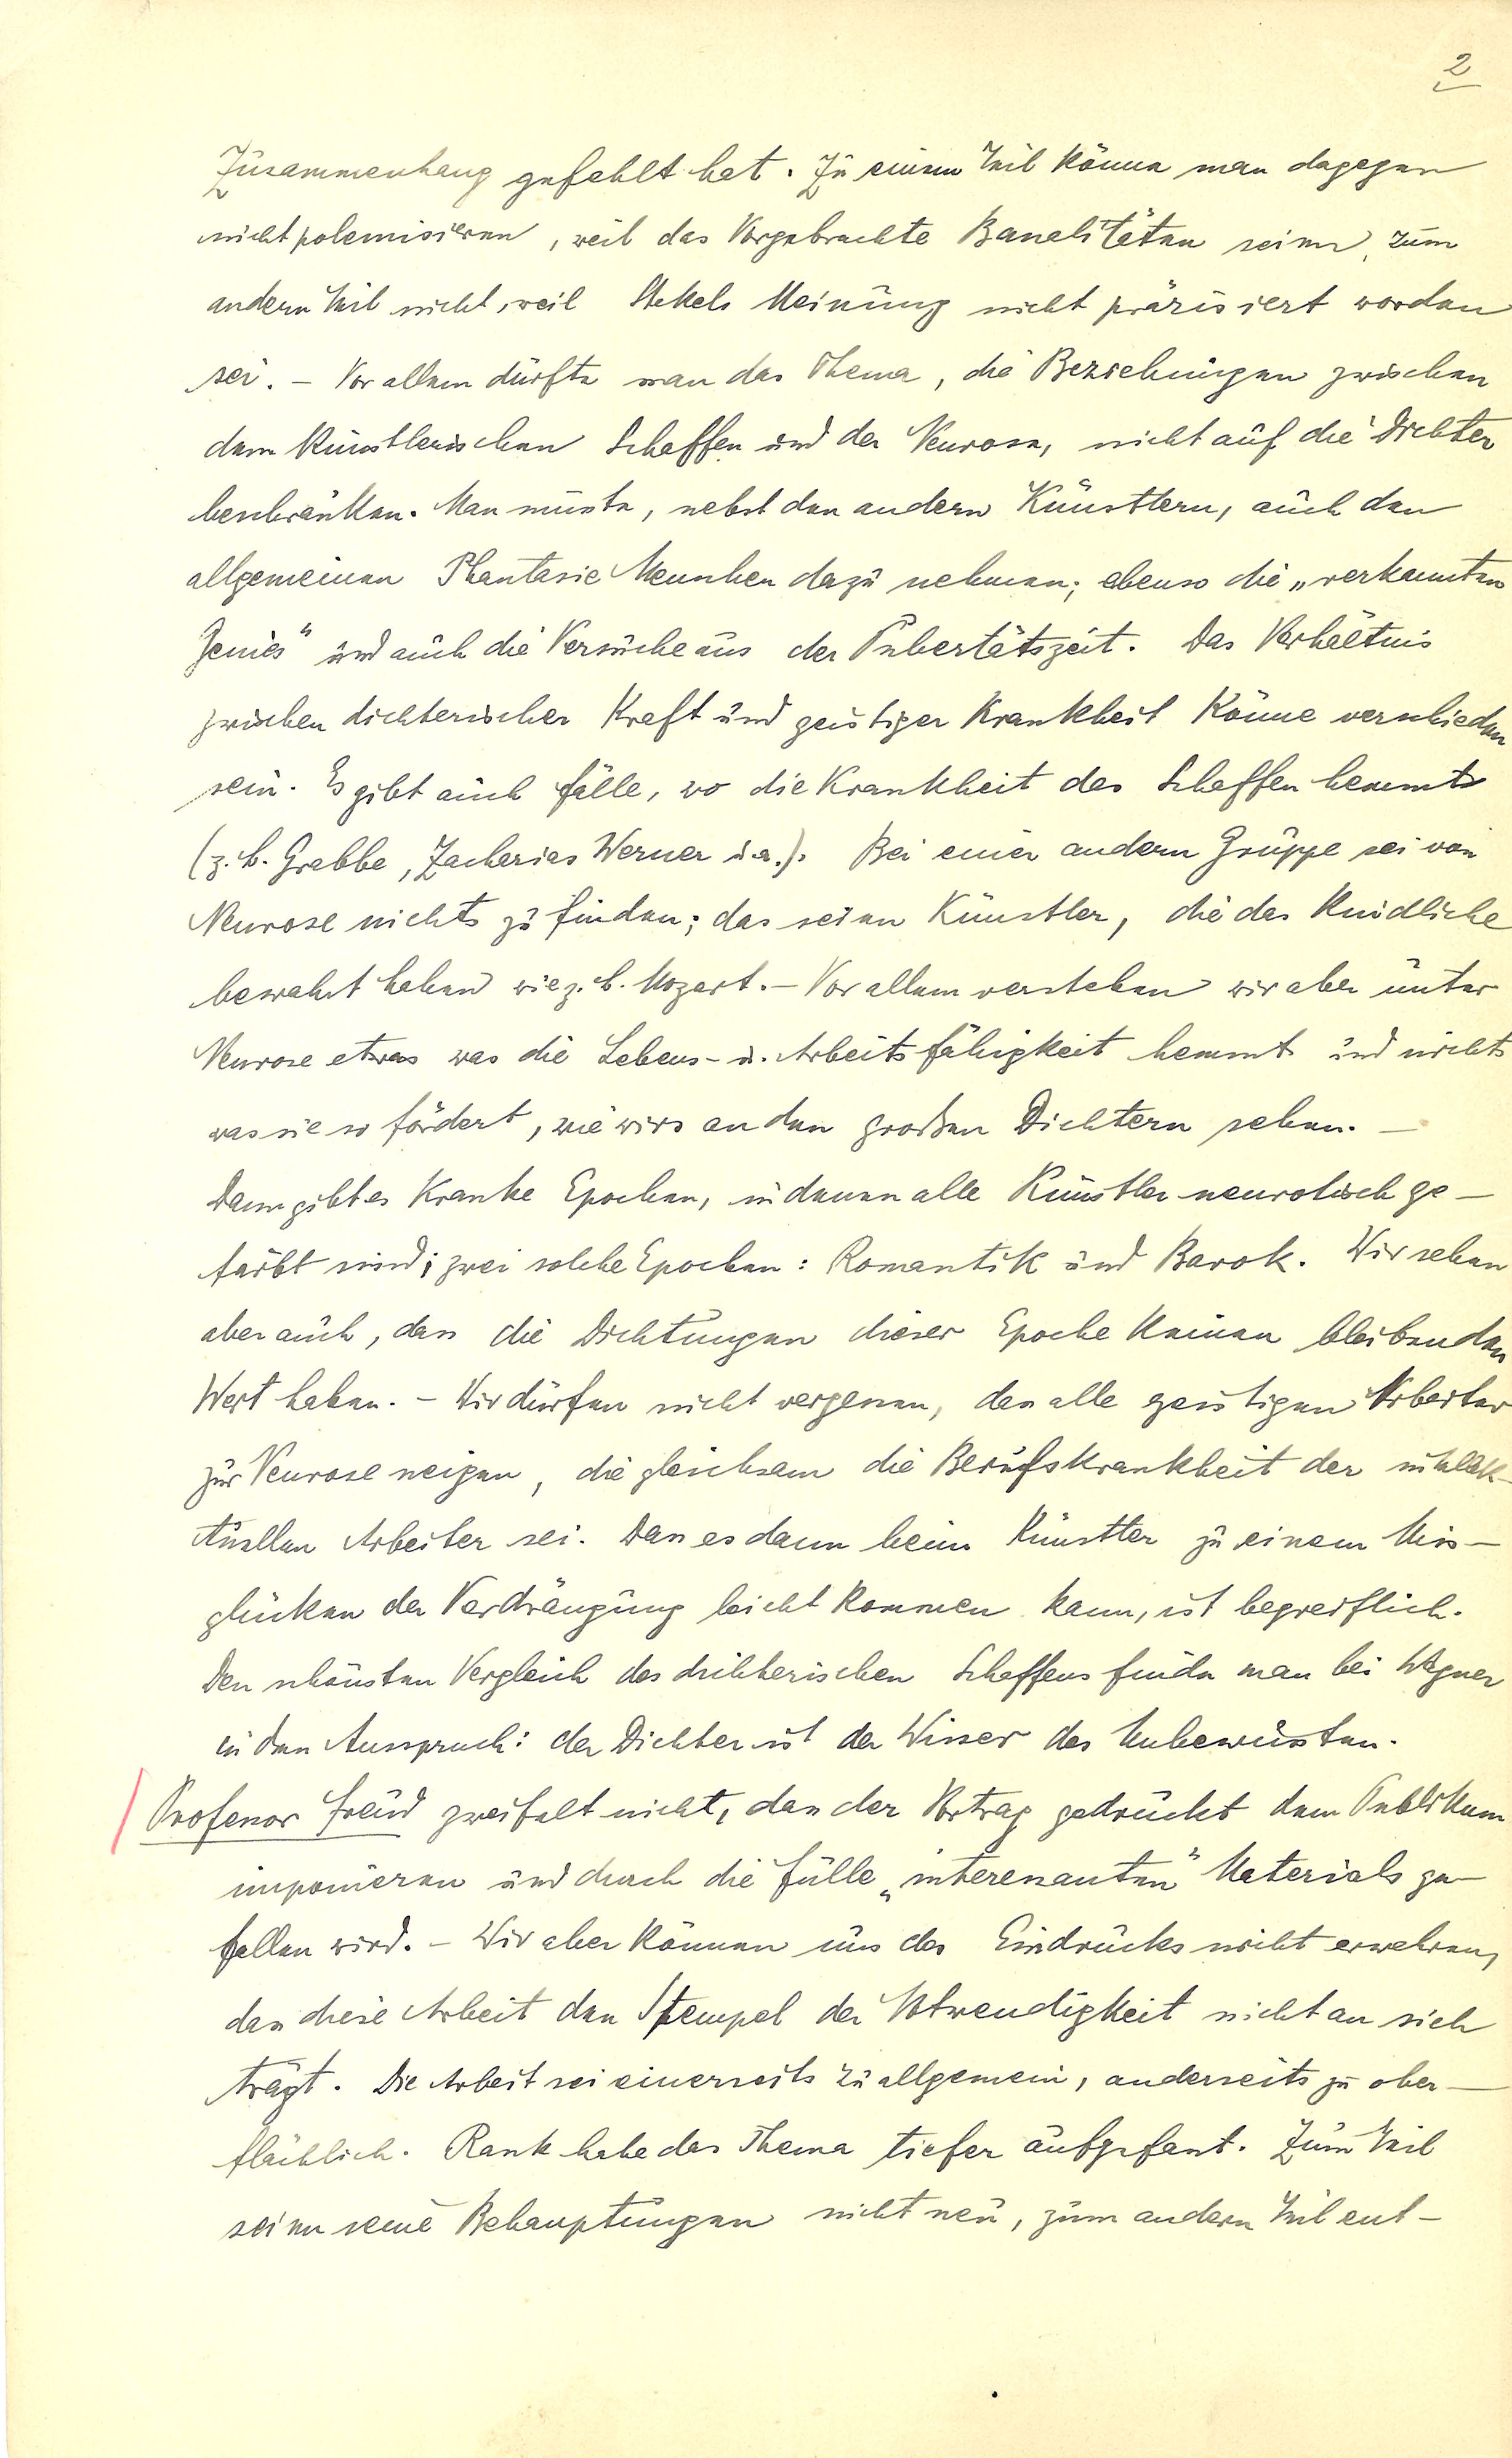 2
Zusammenhang gefehlt hat. Zu einem Teil könne man dagegen
nicht polemisieren, weil das Vorgebrachte Banalitäten seien, zum
andern Teil nicht, weil Stekels Meinung nicht präzisiert worden
sei. – Vor allem dürfte man das Thema, die Beziehungen zwischen
dem künstlerischen Schaffen und der Neurose, nicht auf die Dichter
beschränken. Man müsste, nebst den andern Künstlern, auch den
allgemeinen Phantasie Menschen dazu nehmen; ebenso die „verkannten
Genies“ und auch die Versuche aus der Pubertätszeit. Das Verhältnis
zwischen dichterischer Kraft und geistiger Krankheit könne verschieden
sein. Es gibt auch Fälle, wo die Krankheit das Schaffen hemmt
(z. b. Grabbe, Zacharias Werner u.a.). Bei einer andern Gruppe sei von
Neurose nichts zu finden; das seien Künstler, die das Kindliche
bewahrt haben wie z. b. Mozart. – Vor allem verstehen wir aber unter
Neurose etwas was die Lebens- u. Arbeitsfähigkeit hemmt und nichts
was sie so fördert, wie wirs an den großen Dichtern sehen. –
Dann gibt es kranke Epochen, in denen alle Künstler neurotisch ge-
färbt sind; zwei solche Epochen: Romantik und Barok. Wir sehen
aber auch, dass die Dichtungen dieser Epoche keinen bleibenden
Wert haben. – Wir dürfen nicht vergessen, dass alle geistigen Arbeiter
zur Neurose neigen, die gleichsam die Berufskrankheit der intellek-
tuellen Arbeiter sei. Dass es dann beim Künstler zu einem Miss-
glücken der Verdrängung leicht kommen kann, ist begreiflich.
Den schönsten Vergleich des dichterischen Schaffens finde man bei Wagner
in dem Ausspruch: der Dichter ist der Wisser des Unbewussten.
Professor Freud zweifelt nicht, dass der Vortrag gedruckt dem Publikum
imponieren und durch die Fülle „interessanten“ Materials ge-
fallen wird. – Wir aber können uns des Eindrucks nicht erwehren,
dass diese Arbeit den Stempel der Notwendigkeit nicht an sich
trägt. Die Arbeit sei einerseits zu allgemein, anderseits zu ober-
flächlich. Rank habe das Thema tiefer aufgefasst. Zum Teil
seien seine Behauptungen nicht neu, zum andern Teil ent-